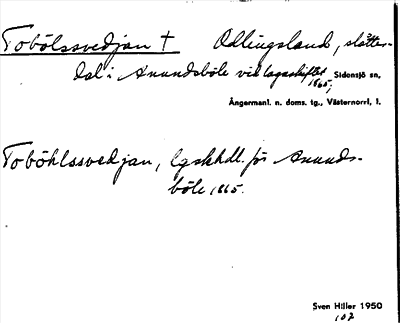 Tobölssvedjan † Odlingsland, slåtter-
dal i Anundsböle vid lagaskiftet 1865, Sidensjö sn,
Ångermanl. n. doms. tg., Västernorrl. l.
Toböhlssvedjan, lgskhdl. för Anunds-
böle 1865.
Sven Hiller 1950
107